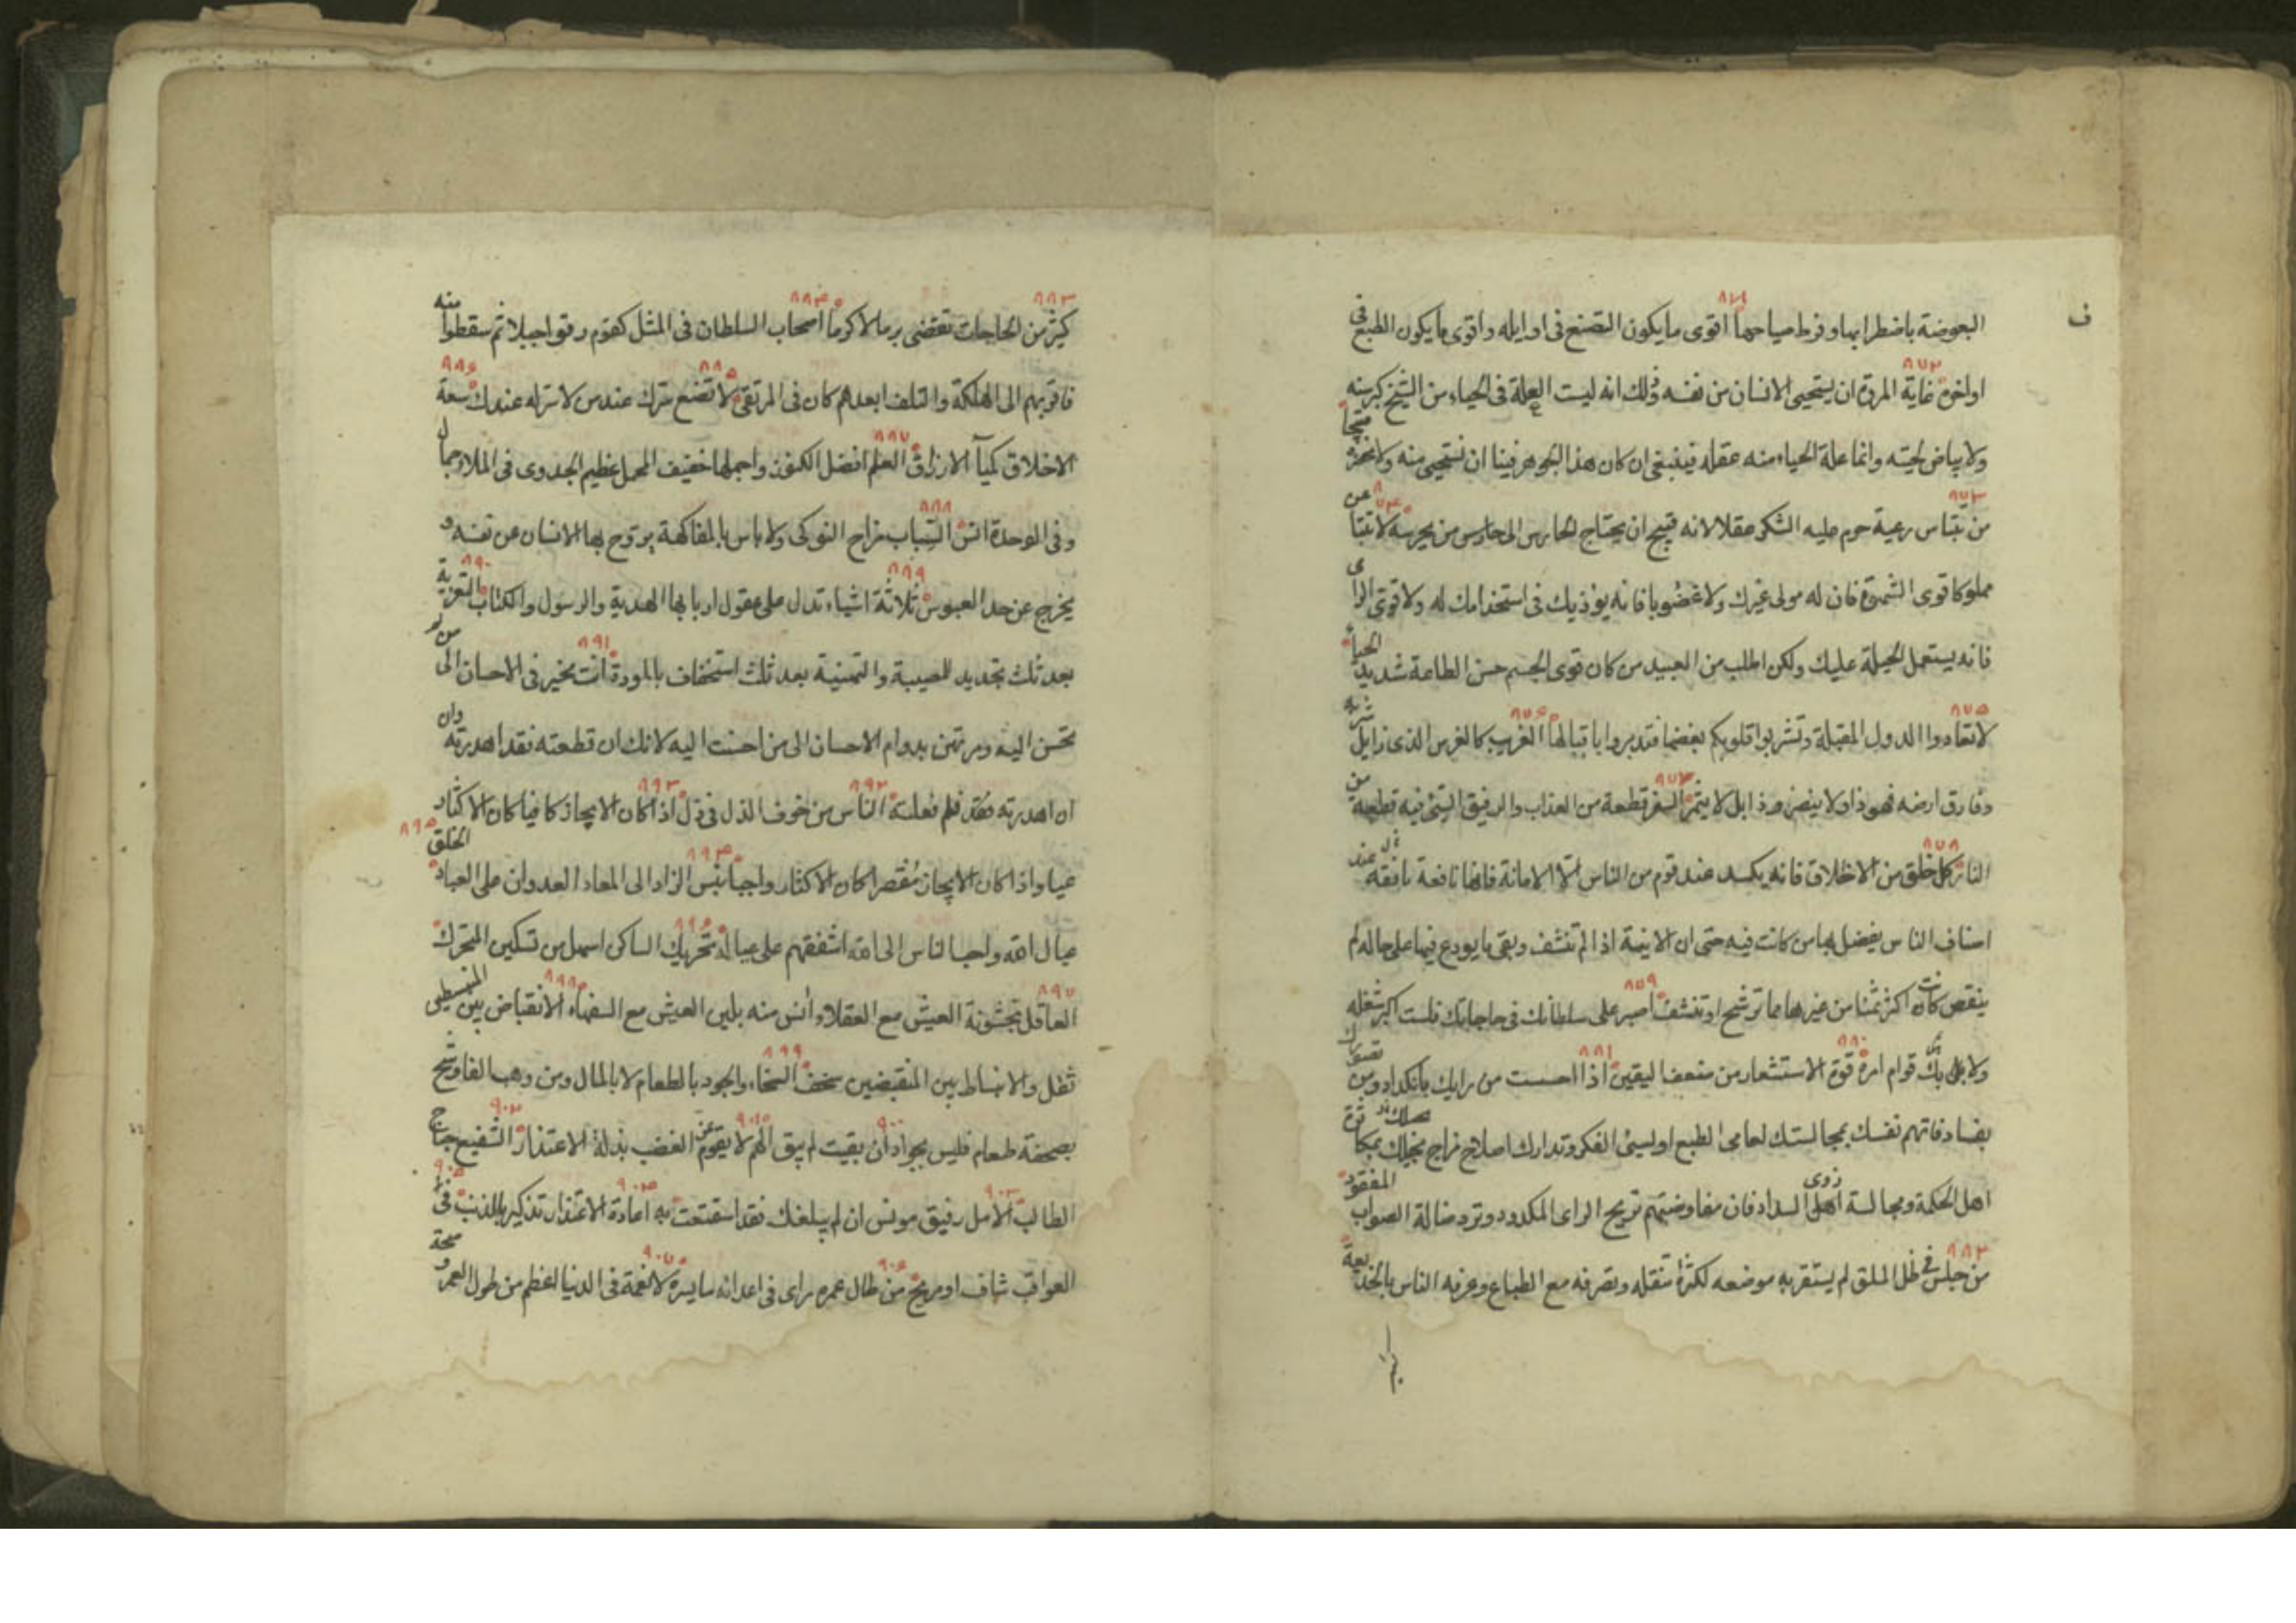 ف
٨٧١
البعوضة باضطرابها وفرط صياحها اقوى ما يكون التصنع فى اوايله واقوى ما يكون الطبع فى
٨٧٢
اواخره غاية المروة ان يستحيى الانسان من نفسه وذلك انه ليست العلة فى الحياء من الشيخ كبر سنه
ولا بياض لحيته وانما علة الحياء منه عقله فينبغى ان كان هذا الجوهر فينا ان نستحيى منه ولا نحضره قبيحا
٨٧٣ ٨٧٤
من ساس رعية حرم عليه السكر عقلا لانه قبيح ان يحتاج الحارس الى حارس من يحرسه لا تبتاعن
مملوكا قوى الشهوة فان له مولى غيرك ولا غضوبا فانه يؤذيك فى استخدامك له ولا قوى الراى
فانه يستعمل الحيلة عليك ولكن اطلب من العبيد من كان قوى الجسم حسن الطاعة شديد الحياء
٨٧٥ ٨٧٦
لا تعادوا الدول المقبلة وتشربوا قلوبكم بغضها فتدبروا باقبالها الغريب كالغرس الذى زايل شربه
٨٧٧
وفارق ارضه فهو ذاو لا ينضر وذابل لا يثمر السفر قطعة من العذاب والرفيق السيئ فيه قطعة من
٨٧٨
النار كل خلق من الاخلاق فانه يكسد عند قوم من الناس الا الامانة فانها نافعة نافقة عند
اصناف الناس يفضل بها من كانت فيه حتى ان الانية اذا لم تنشف وبقى ما يودع فيها على حاله لم
٨٧٩
ينقص كانت اكثر ثمنا من غيرها مما ترشح او تنشف اصبر على سلطانك فى حاجاتك فلست اكبر شغله
٨٨٠ ٨٨١
ولا بك قوام امره قوة الاستشعار من ضعف اليقين اذا احسست من رايك باكداد ومن تصورك
بفساد فاتهم نفسك بمجالستك لعامى الطبع او لسيئ الفكر وتدارك اصلاح مزاج تخيلك بمكاثرة
اهل الحكمة ومجالسة ذوى السداد فان مفاوضتهم تريح الراى المكدود وترد ضالة الصواب المفقود
٨٨٢
من جلس فى ظل الملق لم يستقر به موضعه لكثرة تنقله وتصرفه مع الطباع وعرفه الناس بالخديعة
كثير
٨٨٣ ٨٨٤
كثير من الحاجات تقضى برما لا كرما اصحاب السلطان فى المثل كقوم رقوا جبلا ثم سقطوا منه
٨٨٥ ٨٨٦
فاقربهم الى الهلكة والتلف ابعدهم كان فى المرتقى لا تضع سرك عند من لا سر له عندك سعة
٨٨٧
الاخلاق كيمآ الارزاق العلم افضل الكنوز واجملها خفيف المحمل عظيم الجدوى فى الملا جمال
٨٨٨
وفى الوحدة انس السباب مزاح النوكى ولا باس بالمفاكهة يروح بها الانسان عن نفسه و
٨٨٩ ٨٩٠
يخرج عن حد العبوس ثلاثة اشياء تدل على عقول اربابها الهدية والرسول والكتاب التعزية
٨٩١
بعد ثلث تجديد للمصيبة والتهنية بعد ثلث استخفاف بالمودة انت مخير فى الاحسان الى من لم
تحسن اليه ومرتهن بدوام الاحسان الى من احسنت اليه لانك ان قطعته فقد اهدرته وان
٨٩٢ ٨٩٣
اهدرته فلم فعلته الناس من خوف الذل فى ذل اذا كان الايجاز كافيا كان الاكثار
٨٩٤ ٨٩٥
عيا واذا كان الايجاز مقصرا كان الاكثار واجبا بئس الزاد الى المعاد العدوان على العباد الخلق
٨٩٦
عيال الله واحب الناس الى الله اشفقهم على عياله تحريك الساكن اسهل من تسكين المتحرك
٨٩٧ ٨٩٨
العاقل بخشونة العيش مع العقلاء انس منه بلين العيش مع السفهاء الانقباض بين المنبسطين
٨٩٩
ثقل والانبساط بين المنقبضين سخف السخاء والجود بالطعام لا بالمال ومن وهب الفا وشح
٩٠٠ ٩٠١ ٩٠٢
بصحفة طعام فليس بجواد ان بقيت لم يبق الهم لا يقوم عز الغضب بذلة الاعتذار الشفيع جناح
٩٠٣ ٩٠٤ ٩٠٥
الطالب الامل رفيق مونس ان لم يبلغك فقد استمتعت به اعادة الاعتذار تذكير بالذنب فى
٩٠٦ ٩٠٧
العواقب شاف او مريح من طال عمره راى فى اعدائه ما يسره لا نعمة فى الدنيا اعظم من طول العمر و صحة